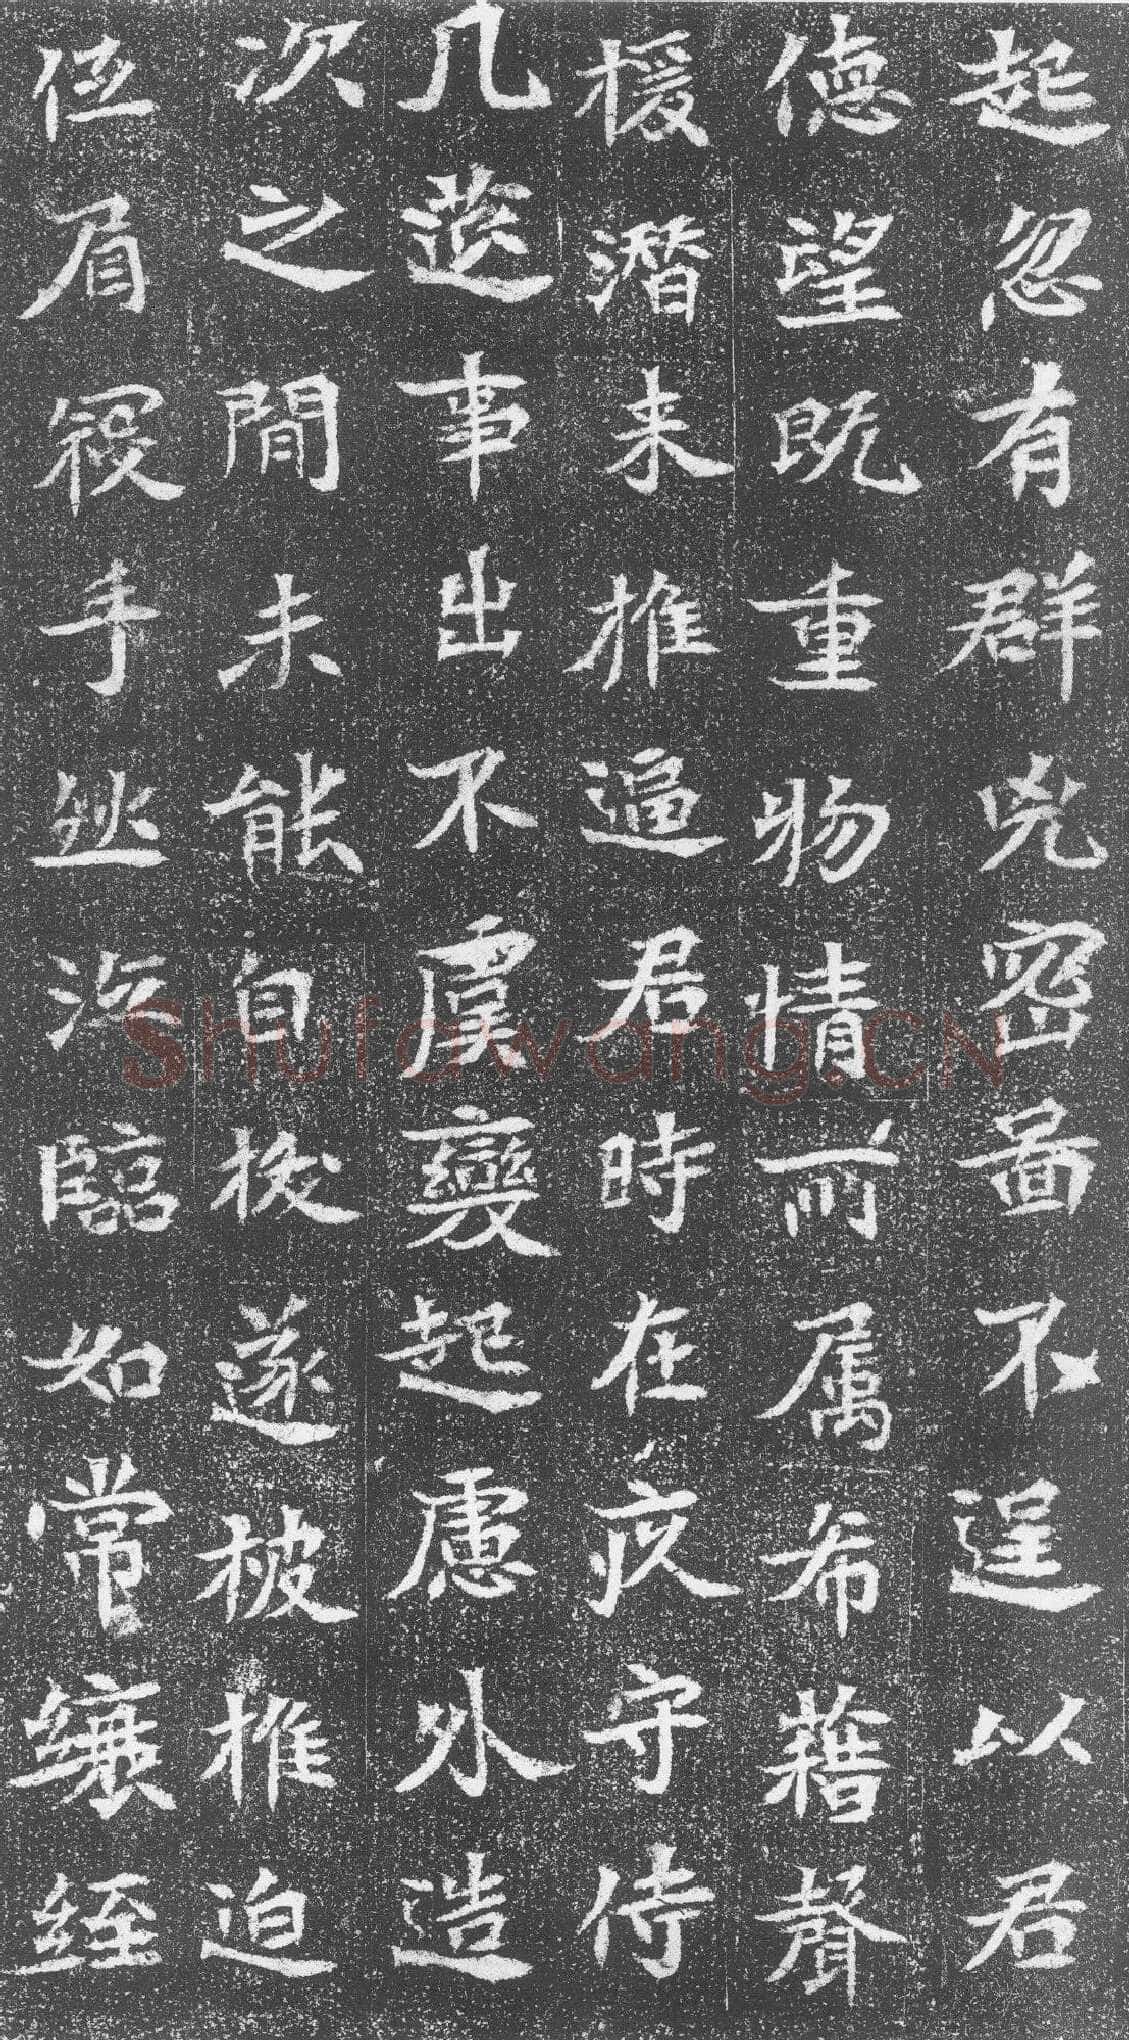 起忽有群兇密啚不逞以君
德望既重物情所属希藉聲
援潛来推逼君時在疚守侍
几莚事出不虞變起慮外造
次之間未能自拔遂被推迫
俛眉從手然汎臨如常纕絰
Shufawang.CN